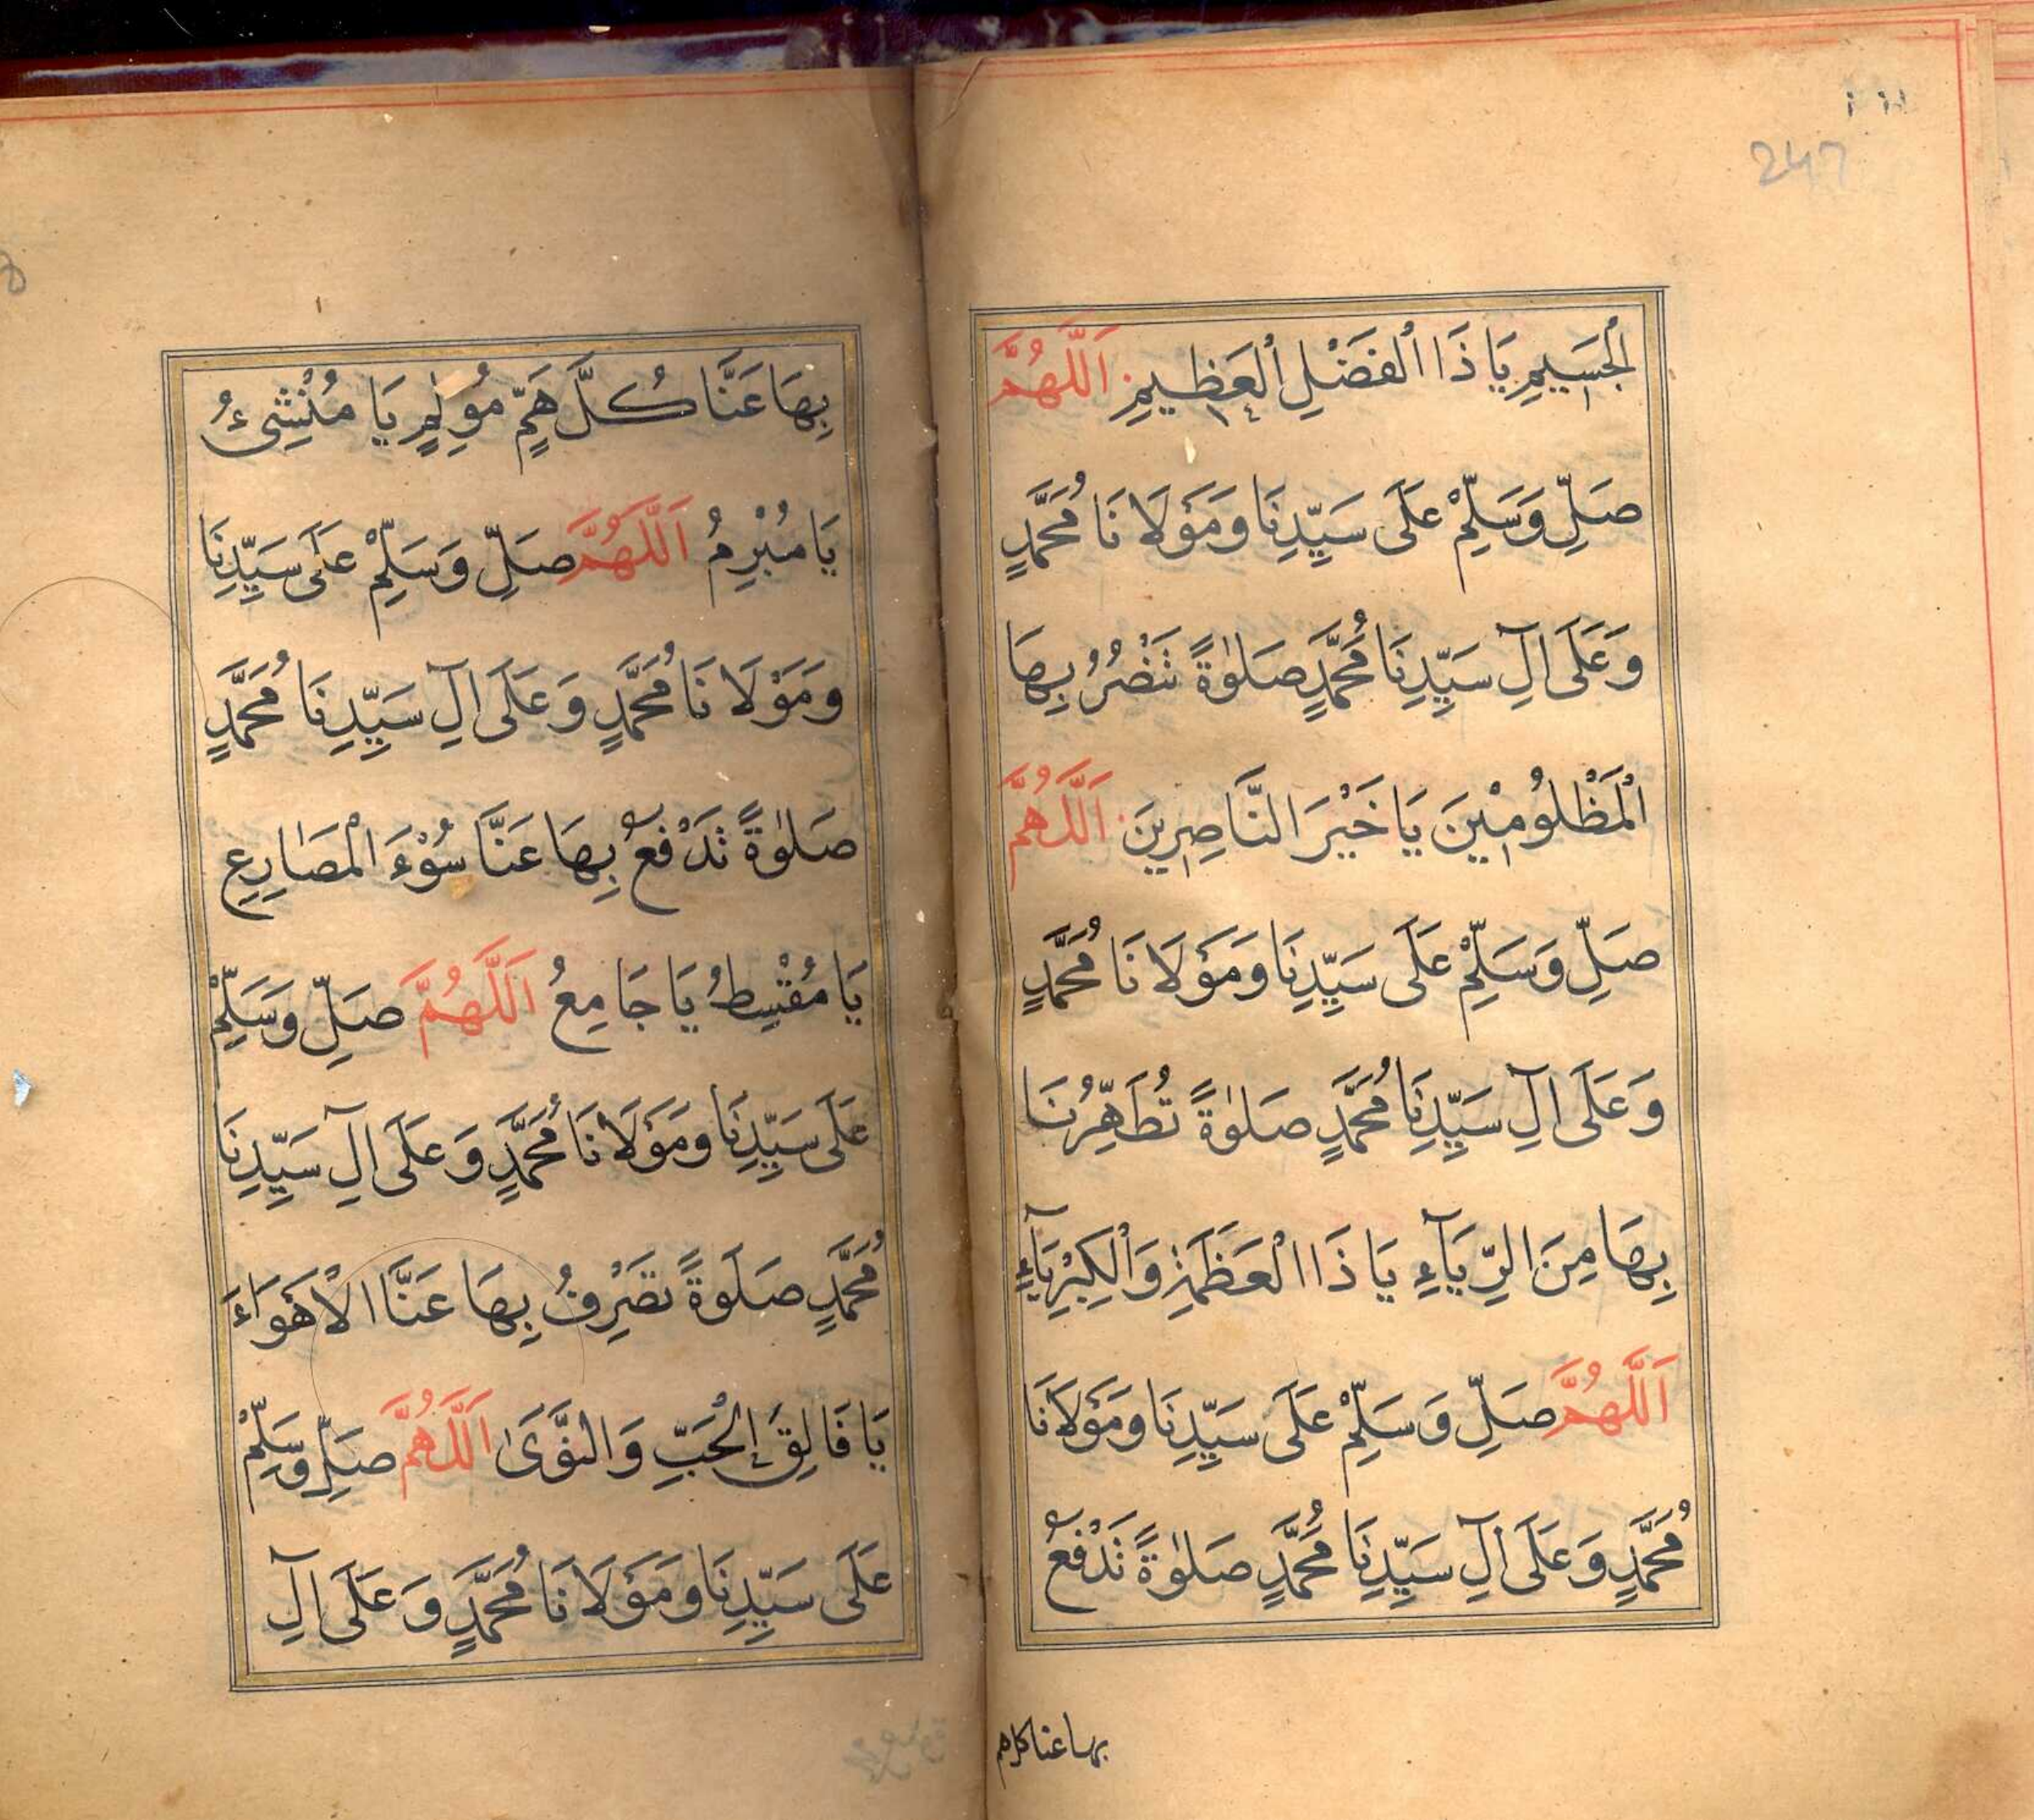 247
الْجَسِيمِ يَا ذَا الْفَضْلِ الْعَظِيمِ اَللّٰهُمَّ
صَلِّ وَسَلِّمْ عَلَى سَيِّدِنَا وَمَوْلَانَا مُحَمَّدٍ
وَعَلَى اٰلِ سَيِّدِنَا مُحَمَّدٍ صَلٰوةً تَنْصُرُ بِهَا
الْمَظْلُومِيْنَ يَا خَيْرَ النَّاصِرِينَ اَللّٰهُمَّ
صَلِّ وَسَلِّمْ عَلَى سَيِّدِنَا وَمَوْلَانَا مُحَمَّدٍ
وَعَلَى اٰلِ سَيِّدِنَا مُحَمَّدٍ صَلٰوةً تُطَهِّرُنَا
بِهَا مِنَ الرِّيَآءِ يَا ذَا الْعَظَمَةِ وَالْكِبْرِيَآءِ
اَللّٰهُمَّ صَلِّ وَسَلِّمْ عَلَى سَيِّدِنَا وَمَوْلَانَا
مُحَمَّدٍ وَعَلَى اٰلِ سَيِّدِنَا مُحَمَّدٍ صَلٰوةً تَدْفَعُ
بها عنا كل هم
بِهَا عَنَّا كُلَّ هَمٍّ مُولِمٍ يَا مُنْشِئُ
يَا مُبْرِمُ اَللّٰهُمَّ صَلِّ وَسَلِّمْ عَلَى سَيِّدِنَا
وَمَوْلَانَا مُحَمَّدٍ وَعَلَى اٰلِ سَيِّدِنَا مُحَمَّدٍ
صَلٰوةً تَدْفَعُ بِهَا عَنَّا سُوْءَ الْمَصَارِعِ
يَا مُقْسِطُ يَا جَامِعُ اَللّٰهُمَّ صَلِّ وَسَلِّمْ
عَلَى سَيِّدِنَا وَمَوْلَانَا مُحَمَّدٍ وَعَلَى اٰلِ سَيِّدِنَا
مُحَمَّدٍ صَلَوةً تَصْرِفُ بِهَا عَنَّا الْاَهْوَاءَ
يَا فَالِقَ الْحَبِّ وَالنَّوَىٰ اَللّٰهُمَّ صَلِّ وَسَلِّمْ
عَلَى سَيِّدِنَا وَمَوْلَانَا مُحَمَّدٍ وَعَلَى اٰلِ